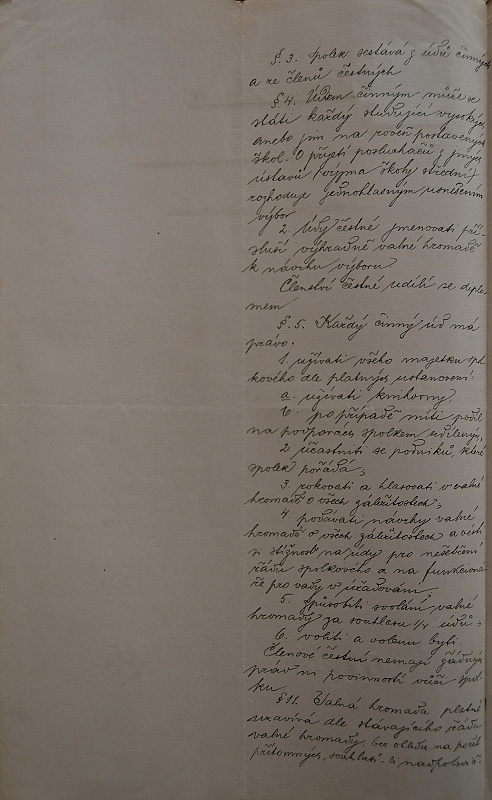 §. 3. Spolek sestává z údů činných
a ze členů čestných
§ 4. Údem činným může se
státi každý studující vysokých
anebo jim na roveň postavených
škol. O přijetí posluchačů z jiných
ústavů (vyjma školy střední)
rozhoduje jednohlasným usnesením
výbor
2. Údy čestné jmenovati pří-
sluší výhradně valné hromadě
k návrhu výboru.
Členství čestné udílí se diplo-
mem
§. 5. Každý činný úd má
právo:
1. užívati všeho majetku spol-
kového dle platných ustanovení:
a. užívati knihovny,
b. po případě míti podíl
na podporách spolkem udílených,
2. účastniti se podniků, které
spolek pořádá,
3. rokovati a hlasovati v valné
hromadě o všech záležitostech,
4. podávati návrhy valné
hromadě o všech záležitostech a vésti
si stížnost na údy pro nešetření
řádu spolkového a na funkcioná-
ře pro vady v úřadování
5. způsobiti svolání valné
hromady za souhlasu 1/4 údů,
6. voliti a volenu býti.
Členové čestní nemají žádných
práv ni povinností vůči spol-
ku
§ 11. Valná hromada platně
uzavírá dle stávajícího řádu
valné hromady, bez ohledu na počet
přítomných, souhlasí-li